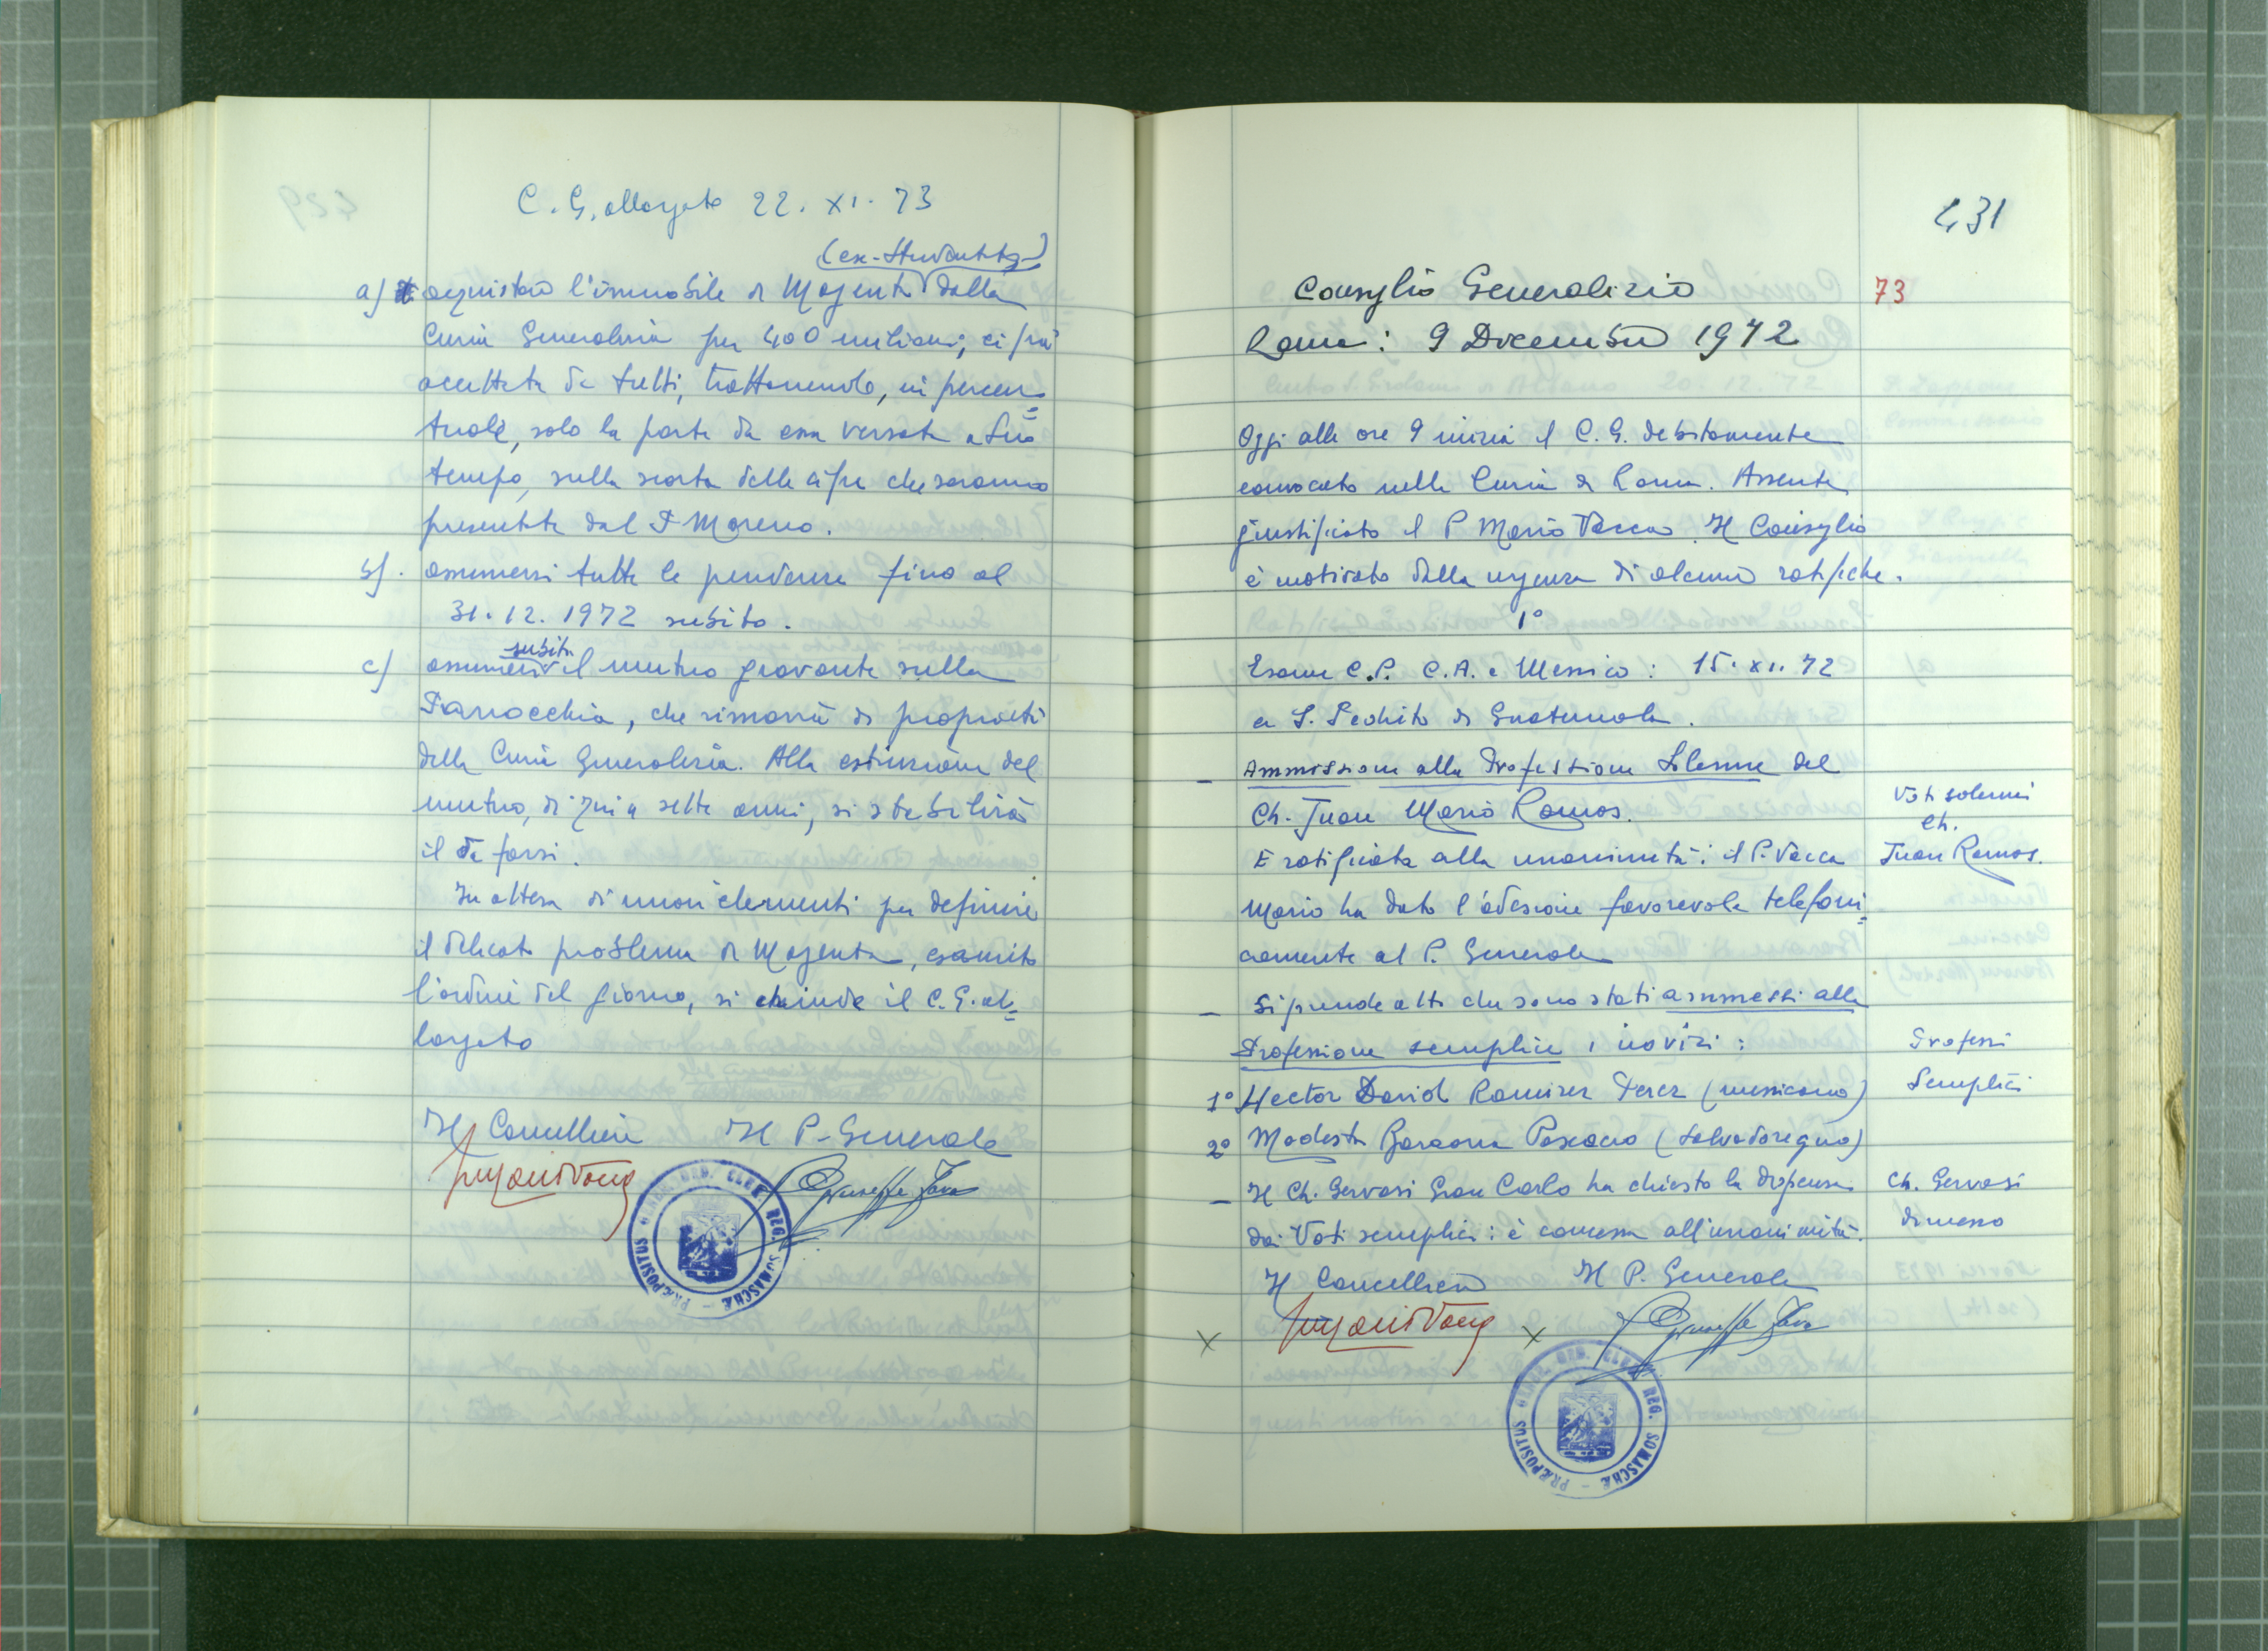 C. G. allargato 22. XI. 73
(ex-Studentato)
a) acquistare l'immobile di Magenta dalla
Curia Generalizia per 400 milioni, cifra
accettata da tutti, trattenendo, in percen=
tuale, solo la parte da essa versata a suo
tempo, sulla scorta delle cifre che saranno
presentate dal P. Moreno.
b). assumersi tutte le pendenze fino al
31.12.1972 subito.
subito
c) assumersi il mutuo gravante sulla
Parrocchia, che rimarrà di proprietà
della Curia Generalizia. Alla estinzione del
mutuo, di qui a sette anni, si stabilirà
il da farsi.
In attesa di nuovi elementi per definire
il delicato problema di Magenta, esaurito
l'ordine del giorno, si chiude il C. G. al=
largato
Il Cancelliere Il P. Generale
Giuseppe Fava
PRÆPOSITUS GENER. ORD. CLER. REG. SOMASCHÆ
431
Consiglio Generalizio 73
Roma: 9 Dicembre 1972
Oggi alle ore 9 inizia il C. G. debitamente
convocato nella Curia di Roma. Assente
giustificato il P. Mario Vacca. Il Consiglio
è motivato dalla urgenza di alcune ratifiche.
1°
Esame C.P. C.A. e Messico: 15. XI. 72
a S. Pedrito di Guatemala.
- Ammissione alla Professione Solenne del
Ch. Juan Mario Ramos.
Voti solenni
Ch.
Juan Ramos.
È ratificata alla unanimità: il P. Vacca
Mario ha dato l'adesione favorevole telefoni=
camente al P. Generale
- Si prende atto che sono stati ammessi alla
Professione semplice i novizi:
Professi
Semplici
1° Hector David Ramirez Perez (messicano)
2° Modesto Barcona Pascacio (salvadoregno)
- Il Ch. Gervasi Gian Carlo ha chiesto la dispensa
dai Voti semplici: è concessa all'unanimità.
Ch. Gervasi
dimesso
Il Cancelliere Il P. Generale
x x Giuseppe Fava
PRÆPOSITUS GENER. ORD. CLER. REG. SOMASCHÆ